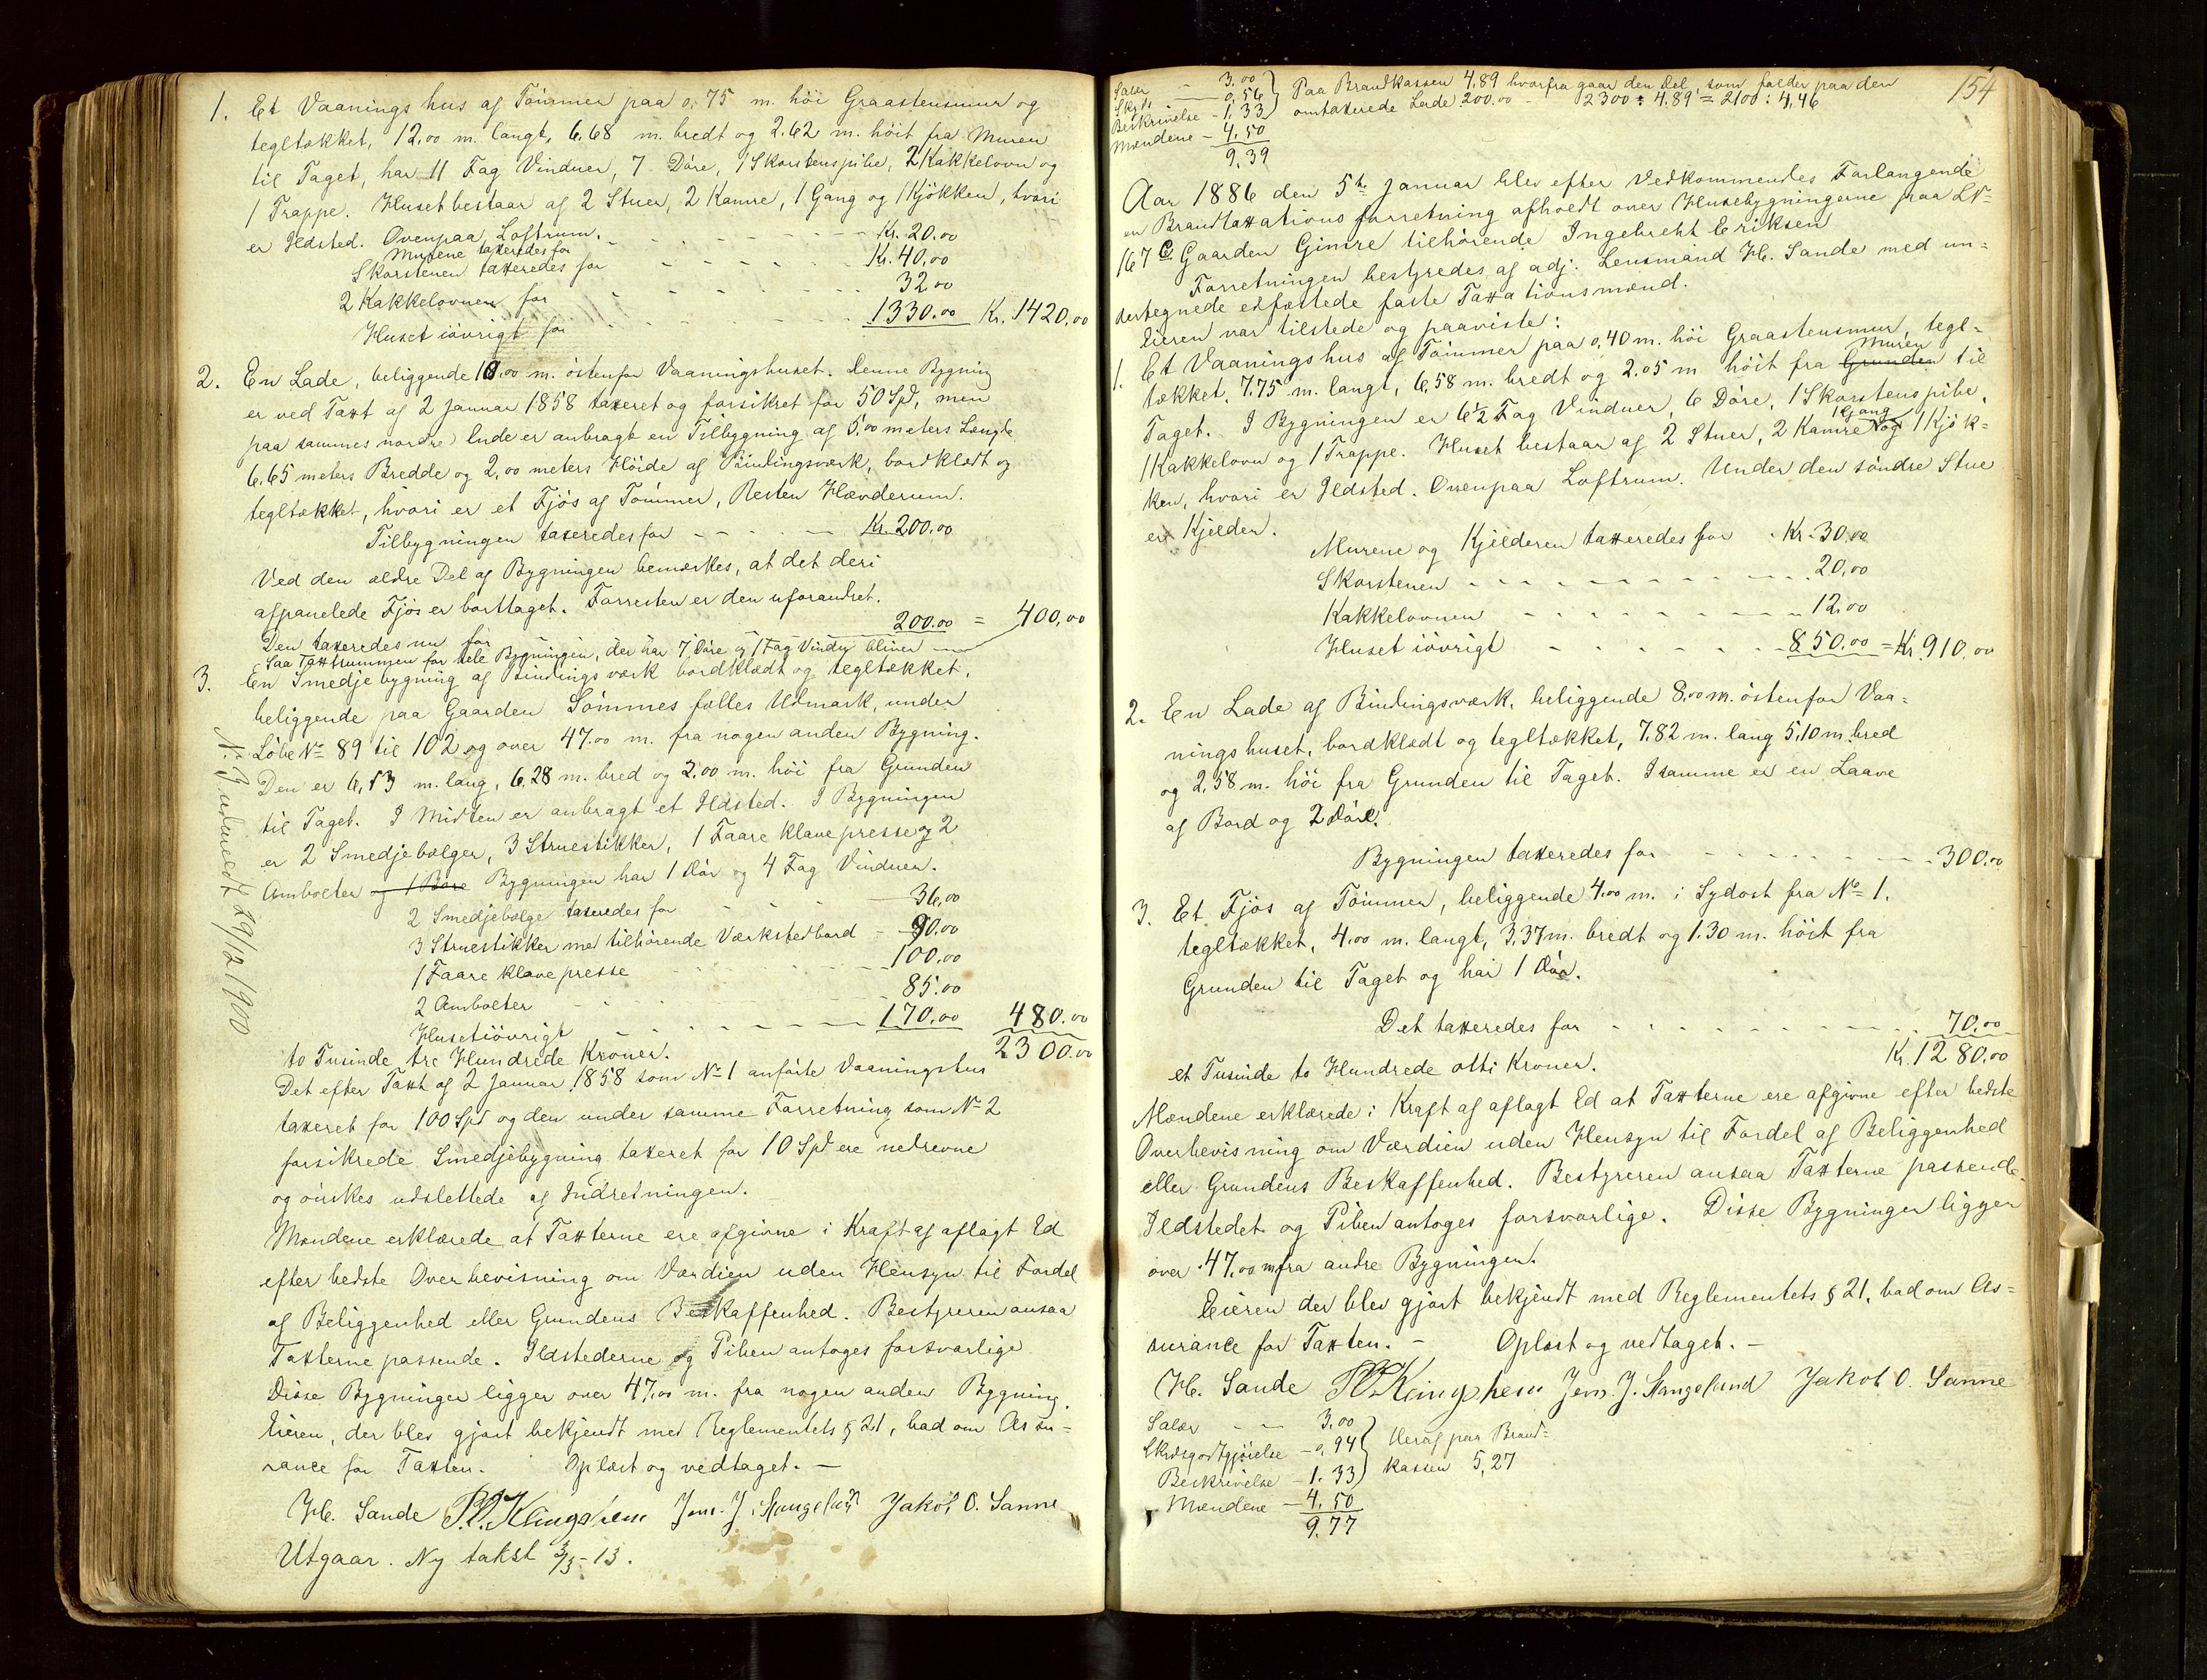 1. Et Vaaningshus af Tömmer paa 0,75 m. höi Graastensmur og
tegltækket, 12,00 m. langt, 6,68 m. bredt og 2.62 m. höit fra Muren
til Taget, har 11 Fag Vinduer, 7 Döre, 1 Skorstenspibe, 2 Kakkelovn og
1 Trappe. Huset bestaar af 2 Stuer, 2 Kamre, 1 Gang og 1 Kjökken, hvori
er Ildsted. Ovenpaa Loftrum.
Murene taxeredes for - - - Kr. 20.00
Skorstenen taxeredes for - - - Kr. 40,00
2 Kakkelovnen for - - - 32.00
Huset iövrigt for - - - 1330.00 Kr. 1420,00
2. En Lade, beliggende 18,00 m. östenfor Vaaningshuset. Denne Bygning
er ved Taxt af 2 Januar 1858 taxeret og forsikret for 50 Spd, men
paa sammes nordre Ende er anbragt en Tilbygning af 5,00 meters Længde
6,65 meters Bredde og 2,00 meters Höide af Bindingsværk, bordklædt og
tegltækket, hvori er et Fjös af Tömmer, Resten Hævderum.
Tilbygningen taxeredes for - - - Kr. 200.00
Ved den ældre Del af Bygningen bemærkes, at det deri
afpanelede Fjös er borttaget. Forresten er den uforandret.
Den taxeredes nu for 200.00 = 400,00
Saa Taxtsummen for hele Bygningen, der har 7 Döre og 1 Fag Vindu bliver
3. En Smedjebygning af Bindingsværk bordklædt og tegltækket,
beliggende paa Gaarden Sömmes fælles Udmark, under
Löbe No 89 til 102 og over 47.00 m. fra nogen anden Bygning.
Den er 6,53 m. lang, 6,28 m. bred og 2.00 m. höi fra Grunden
til Taget. I Midten er anbragt et Ildsted. I Bygningen
er 2 Smedjebælger, 3 Struestikker, 1 Faare klave presse og 2
Ambolter og 1 Bore Bygningen har 1 Dör og 4 Fag Vinduer.
2 Smedjebælge taxeredes for - - - 36,00
3 Struestikker med tilhörende Værkstedbord - 90.00
1 Faare klave presse - - - 100,00
2 Ambolter - - - 85.00
Huset iövrigt - - - 170,00 480.00
to Tusinde tre Hundrede Kroner. 2300.00
Det efter Taxt af 2 Januar 1858 som No 1 anförte Vaaningshus
taxeret for 100 Spd og den under samme Forretning som No 2
forsikrede Smedjebygning taxeret for 10 Spd ere nedrevne
og önskes udslettede af Indretningen.
Mændene erklærede at Taxterne ere afgivne i Kraft af aflagt Ed
efter bedste Overbevisning om Værdien uden Hensyn til Fordel
af Beliggenhed eller Grundens Beskaffenhed. Bestyreren ansaa
Taxterne passende. Ildstederne og Piben antoges forsvarlige
Disse Bygninger ligger over 47,00 m. fra nogen anden Bygning.
Eieren, der blev gjort bekjendt med Reglementets § 21, bad om Assu-
rance for Taxten. Oplæst og vedtaget. -
H. Sande Jakob O. Sanne
Utgaar. Ny takst 3/3-13.
29/12 1900
154
Salær - 3.00 Paa Brandkassen 4,89 hvorfra gaar den Del, som falder paa den
0,56 omtaxerede Lade 200.00 - 2300 : 4.89 = 2100 : 4,46
Beskrivelse - 1,33
Mændene - 4.50
9.39
Aar 1886 den 5te Januar blev efter Vedkommendes Forlangende
en Brandtaxationsforretning afholdt over Husebygningerne paa LN=
167 C Gaarden Gimre tilhörende Ingebreht Eriksen
Forretningen bestyredes af adj. Lensmand H. Sande med un=
dertegnede edfæstede faste Taxationsmænd.
Eieren var tilstede og paaviste:
1. Et Vaaningshus af Tömmer paa 0,40 m. höi Graastensmur, tegl-
tækket, 7.75 m. langt, 6,58 m. bredt og 2.05 m höit fra Grunden Muren til
Taget. I Bygningen er 6½ Fag Vinduer, 6 Döre, 1 Skorstenspibe,
1 Kakkelovn og 1 Trappe. Huset bestaar af 2 Stuer, 2 Kamre 1 Gang og 1 Kjök=
ken, hvori er Ildsted. Ovenpaa Loftrum. Under den söndre Stue
er Kjelder.
Murene og Kjelderen taxeredes for . Kr. 30,00
Skorstenen - - - 20,00
Kakkelovnen - - - 12.00
Huset iövrigt - - - 850.00 = Kr. 910.00
2. En Lade af Bindingsværk, beliggende 8,00 m. östenfor Vaa=
ningshuset, bordklædt og tegltækket, 7,82 m. lang 5,10 m. bred
og 2,58 m. höi fra Grunden til Taget. I samme er en Laave
af Bord og 2 Döre.
Bygningen taxeredes for - - - 300.00
3. Et Fjös af Tömmer, beliggende 4.00 m. i Sydost fra No 1.
tegltækket, 4.00 m. langt, 3,37 m. bredt og 1.30 m. höit fra
Grunden til Taget og har 1 Dör.
Det taxeredes for - - - 70,00
et Tusinde to Hundrede otti Kroner. Kr. 1280.00
Mændene erklærede i Kraft af aflagt Ed at Taxterne ere afgivne efter bedste
Overbevisning om Værdien uden Hensyn til Fordel af Beliggenhed
eller Grundens Beskaffenhed. Bestyreren ansaa Taxterne passende.
Ildstedet og Piben antoges forsvarlige. Disse Bygninger ligger
over 47,00 m fra andre Bygninger.
Eieren der blev gjort bekjendt med Reglementets § 21, bad om As=
surance for Taxten. - Oplæst og vedtaget. -
H. Sande Jakob O. Sanne
Salær - 3,00
Skydsgodtgjörelse - 0,94 Heraf paa Brand=
Beskrivelse - 1.33 kassen 5,27
Mændene - 4.50
9.77